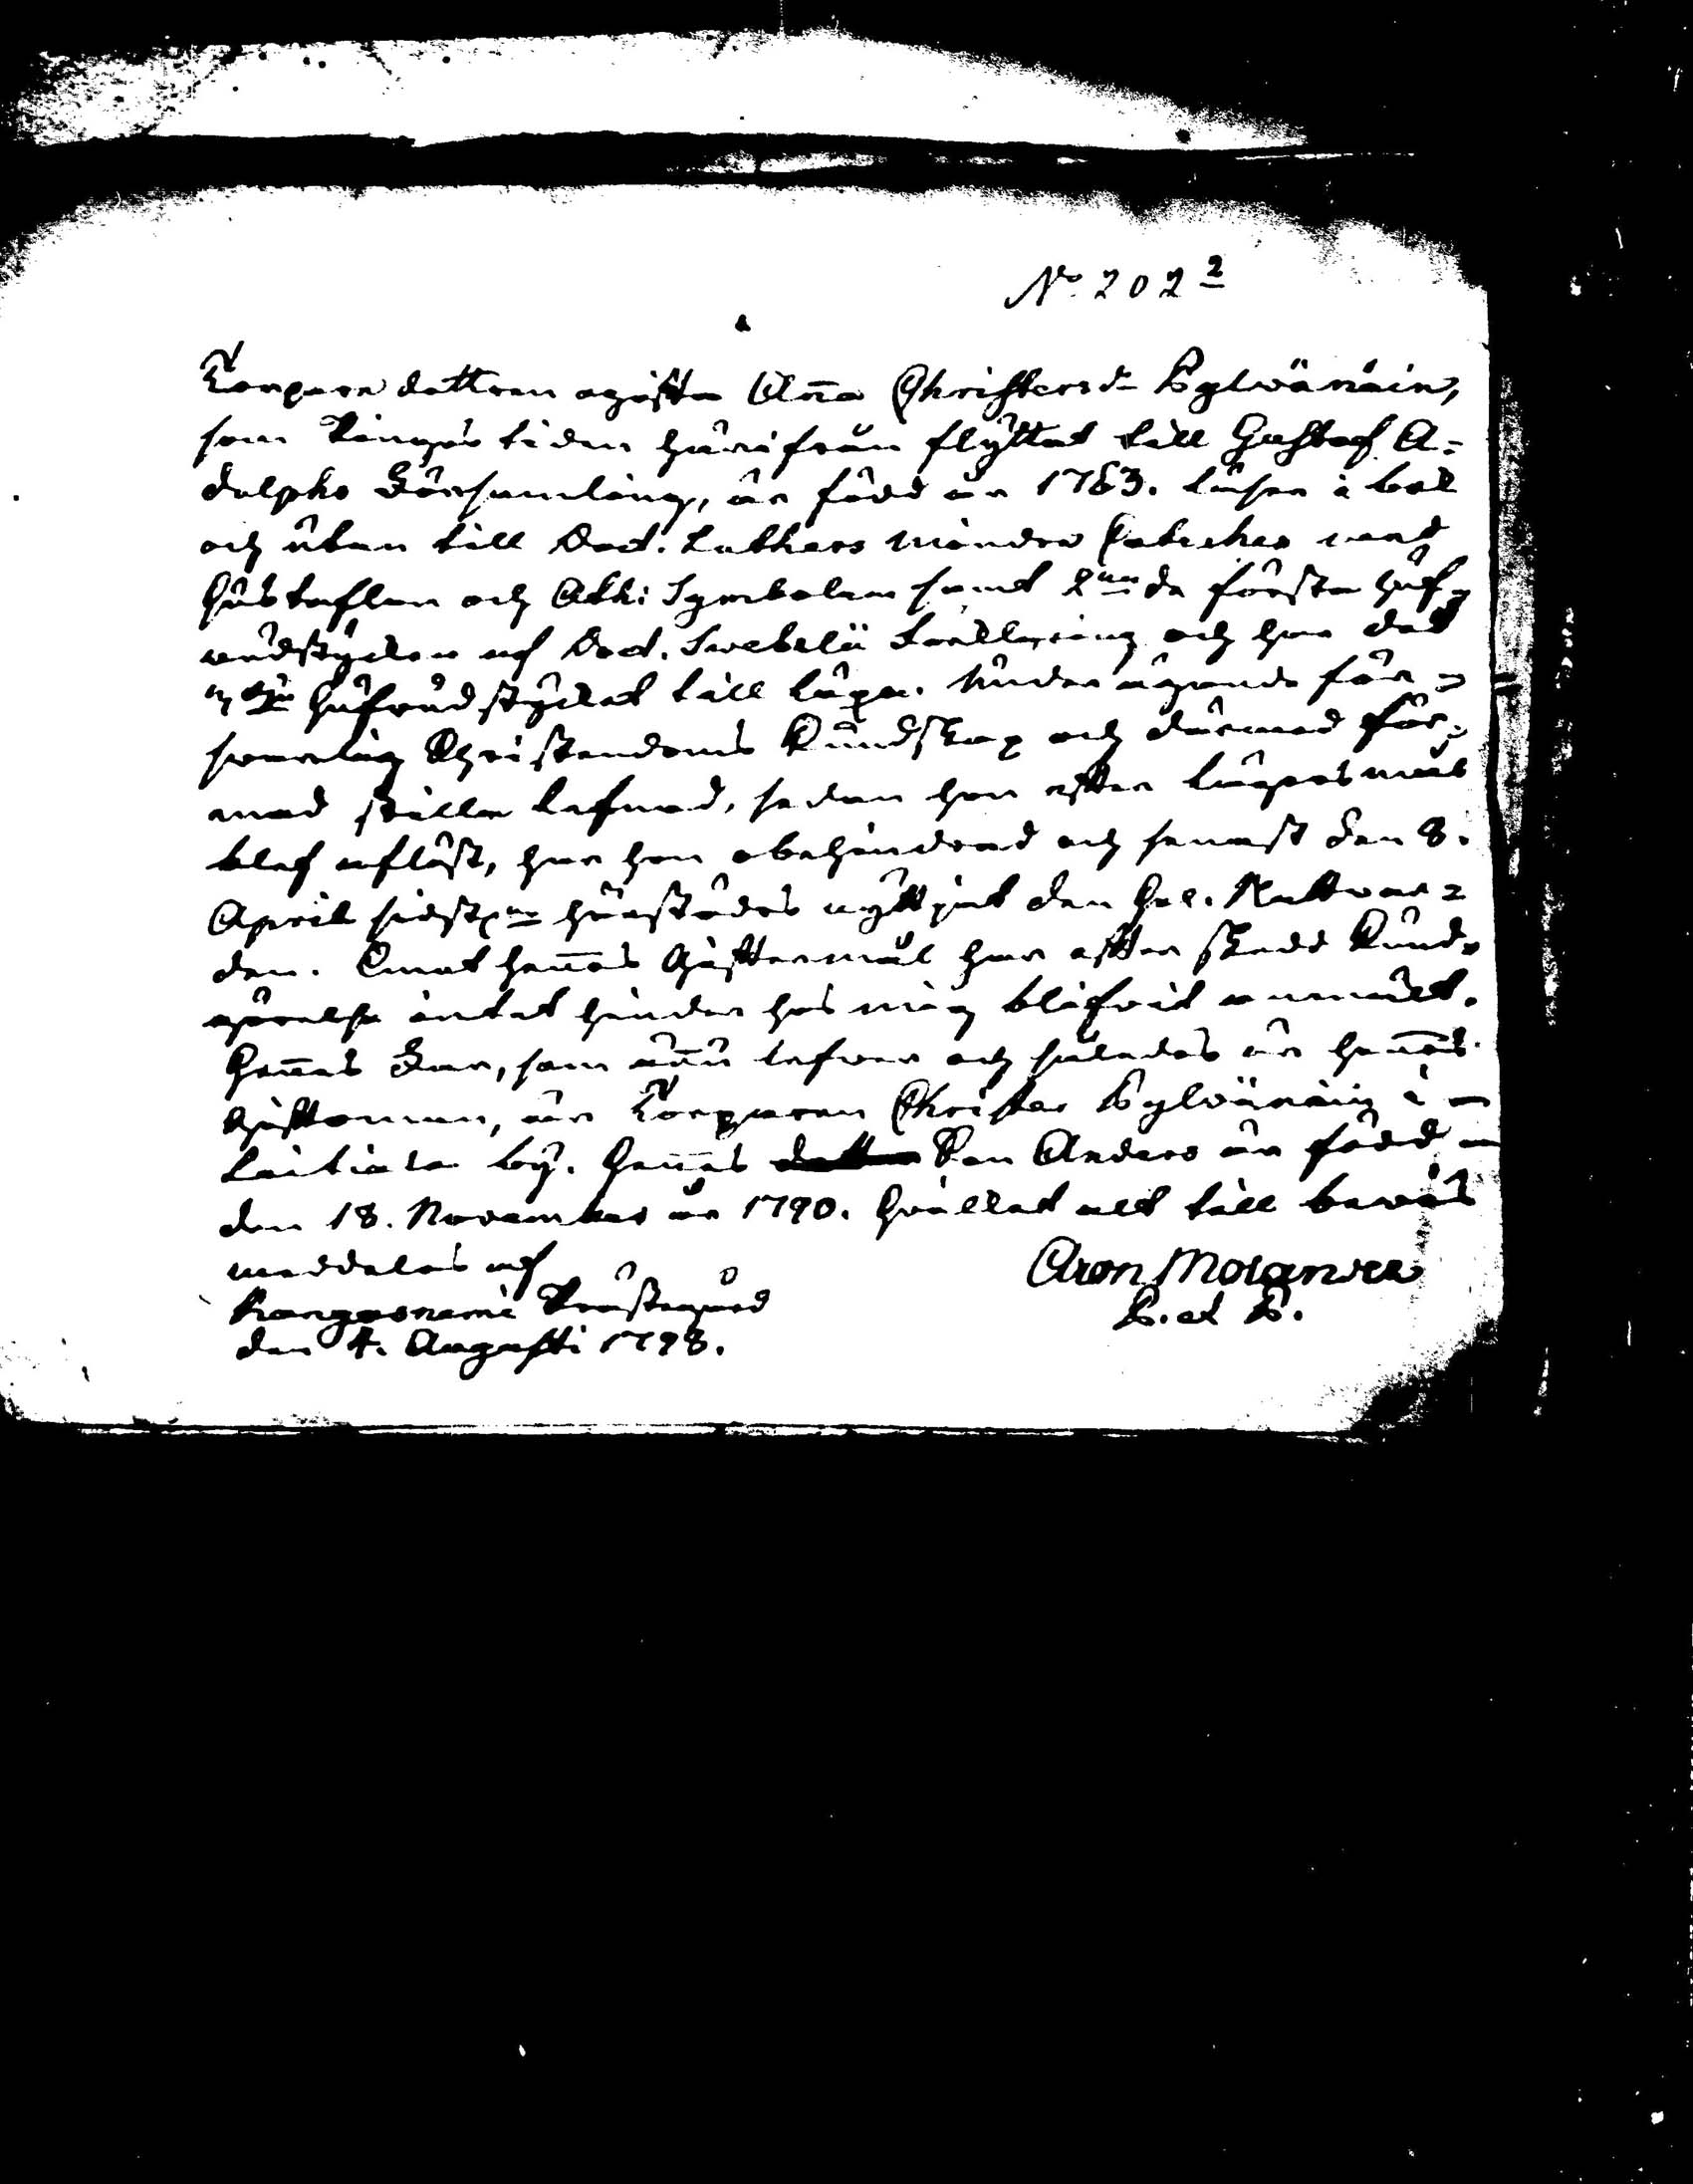 No. 202 2
Torpare dottren ogifta Anna Christersdr Kylwänäin,
som Pingés tiden härifrån flyttat till Gustaf A=
dolphs Församling, är född år 1763. Läser i bok
och utan till Doct. Luthers mindre Cateches med
Hustaflan och Ath: Symbolum samt 2nne de första Huf=
wudstycken af Doct. Swebelii förklaring och har det
3dje Hufwudstycket till läxa. Under ägande för=
swarlig Christendoms Kundskap och därmed för=
enad stilla lefnad, sedan hon efter lägersmål
blef aflöst, har hon obehindrad och senast den 8.
April sidstl. härstädes nyttjat den Hel. Nattwar=
den. Emot hennes Giftermål har efter skedd Kund=
görelse intet hinder hos mig blifvit anmält.
Hennes Far, som ännu lefwer och således är hennes
Giftoman, är Torparen Christer Kylwänäin i
Laitiala by. Hennes Son Anders är född
den 18. November år 1790. Hvilket alt till bewis
meddelas af
Kangasniemi Prästegård
den 4. Augusti 1798.
Aron Molander
K. et P.